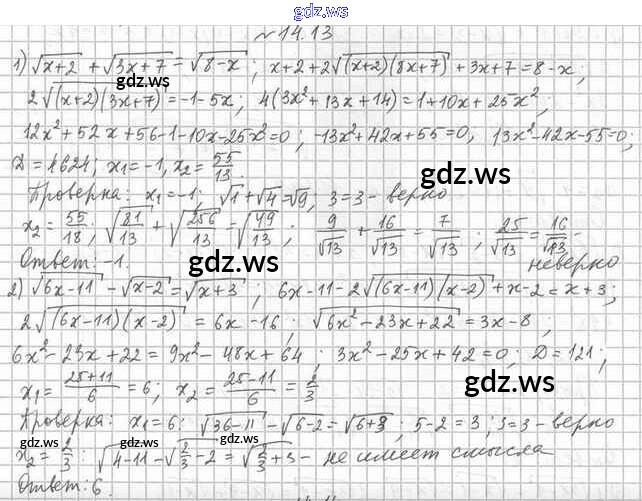 gdz.ws
№14.13
1) √(x+2) + √(3x+7) = √(8-x) ; x+2+2√((x+2)(8x+7)) + 3x+7=8-x;
2√((x+2)(3x+7)) = -1-5x; 4(3x²+13x+14)=1+10x+25x²;
12x²+52x+56-1-10x-25x²=0; -13x²+42x+55=0, 13x²-42x-55=0;
D = 4624; x₁=-1, x₂= 55/13.
gdz.ws
Проверка: x₁=-1; √1+√4=√9, 3=3- верно
x₂= 55/18; √(81/13) + √(256/13) = √(49/13) ; 9/√13 + 16/√13 = 7/√13 ; 25/√13 = 16/√13 -
gdz.ws
Ответ: -1. неверно
2) √(6x-11) - √(x-2) = √(x+3) ; 6x-11-2√((6x-11)(x-2)) + x-2 = x+3;
2√((6x-11)(x-2)) = 6x-16 ; √(6x²-23x+22) = 3x-8 ;
6x²-23x+22 = 9x²-48x+64 ; 3x²-25x+42=0; D=121;
x₁= (25+11)/6 = 6; x₂ = (25-11)/6 = 2/3
gdz.ws
Проверка: x₁=6; √(36-11) - √(6-2) = √(6+3) ; 5-2=3 ; 3=3 - верно
gdz.ws gdz.ws
x₂= 2/3; √(4-11) - √(2/3-2) = √(2/3+3) - не имеет смысла
Ответ: 6.
gdz.ws